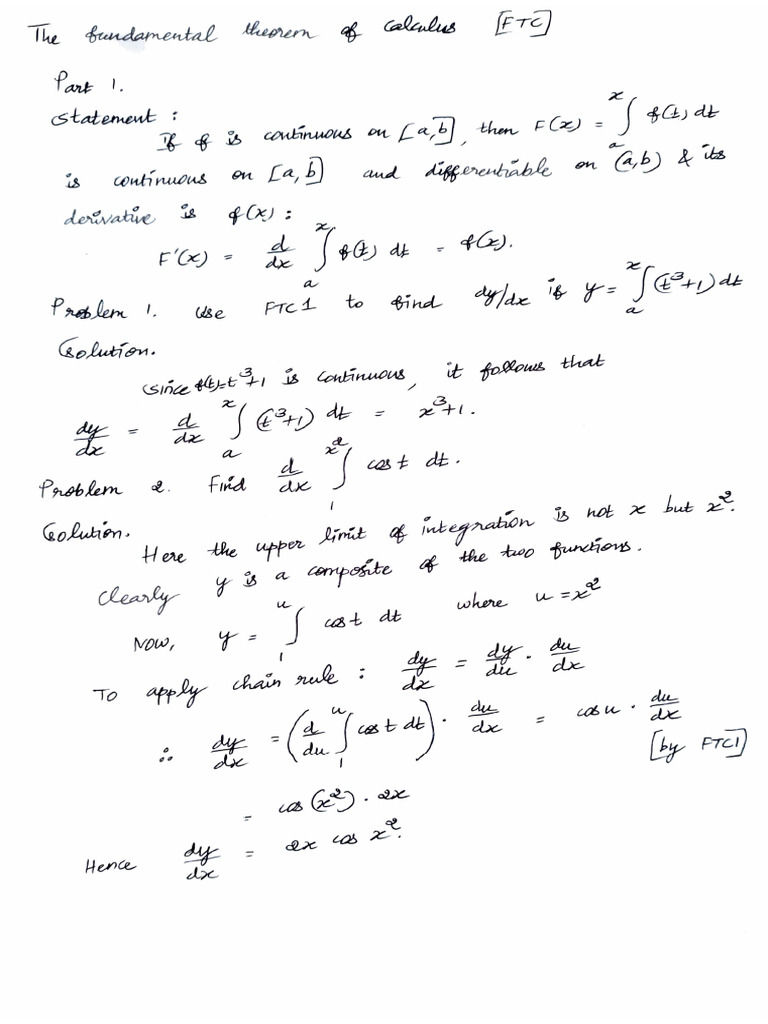 The fundamental theorem of calculus [FTC]
Part 1.
Statement :
If f is continuous on [a,b], then F(x) = ∫ₐˣ f(t) dt
is continuous on [a,b] and differentiable on (a,b) & its
derivative is f(x) :
F'(x) = d/dx ∫ₐˣ f(t) dt = f(x).
Problem 1. Use FTC1 to find dy/dx if y = ∫ₐˣ (t³+1) dt
Solution.
Since f(t)=t³+1 is continuous, it follows that
dy/dx = d/dx ∫ₐˣ (t³+1) dt = x³+1.
Problem 2. Find d/dx ∫₁^(x²) cos t dt.
Solution.
Here the upper limit of integration is not x but x².
Clearly y is a composite of the two functions.
Now, y = ∫₁ᵘ cos t dt where u = x²
To apply chain rule : dy/dx = dy/du · du/dx
∴ dy/dx = (d/du ∫₁ᵘ cos t dt) · du/dx = cos u · du/dx
[by FTC1]
= cos (x²) · 2x
Hence dy/dx = 2x cos x².